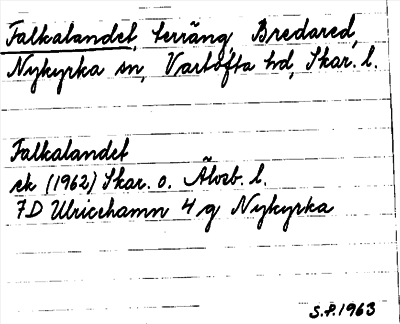 Falkalandet, terräng, Bredared,
Nykyrka sn, Vartofta hd, Skar. l.
Falkalandet
ek (1962) Skar. o. Älvsb. l.
7D Ulricehamn 4 g Nykyrka
S.P. 1963